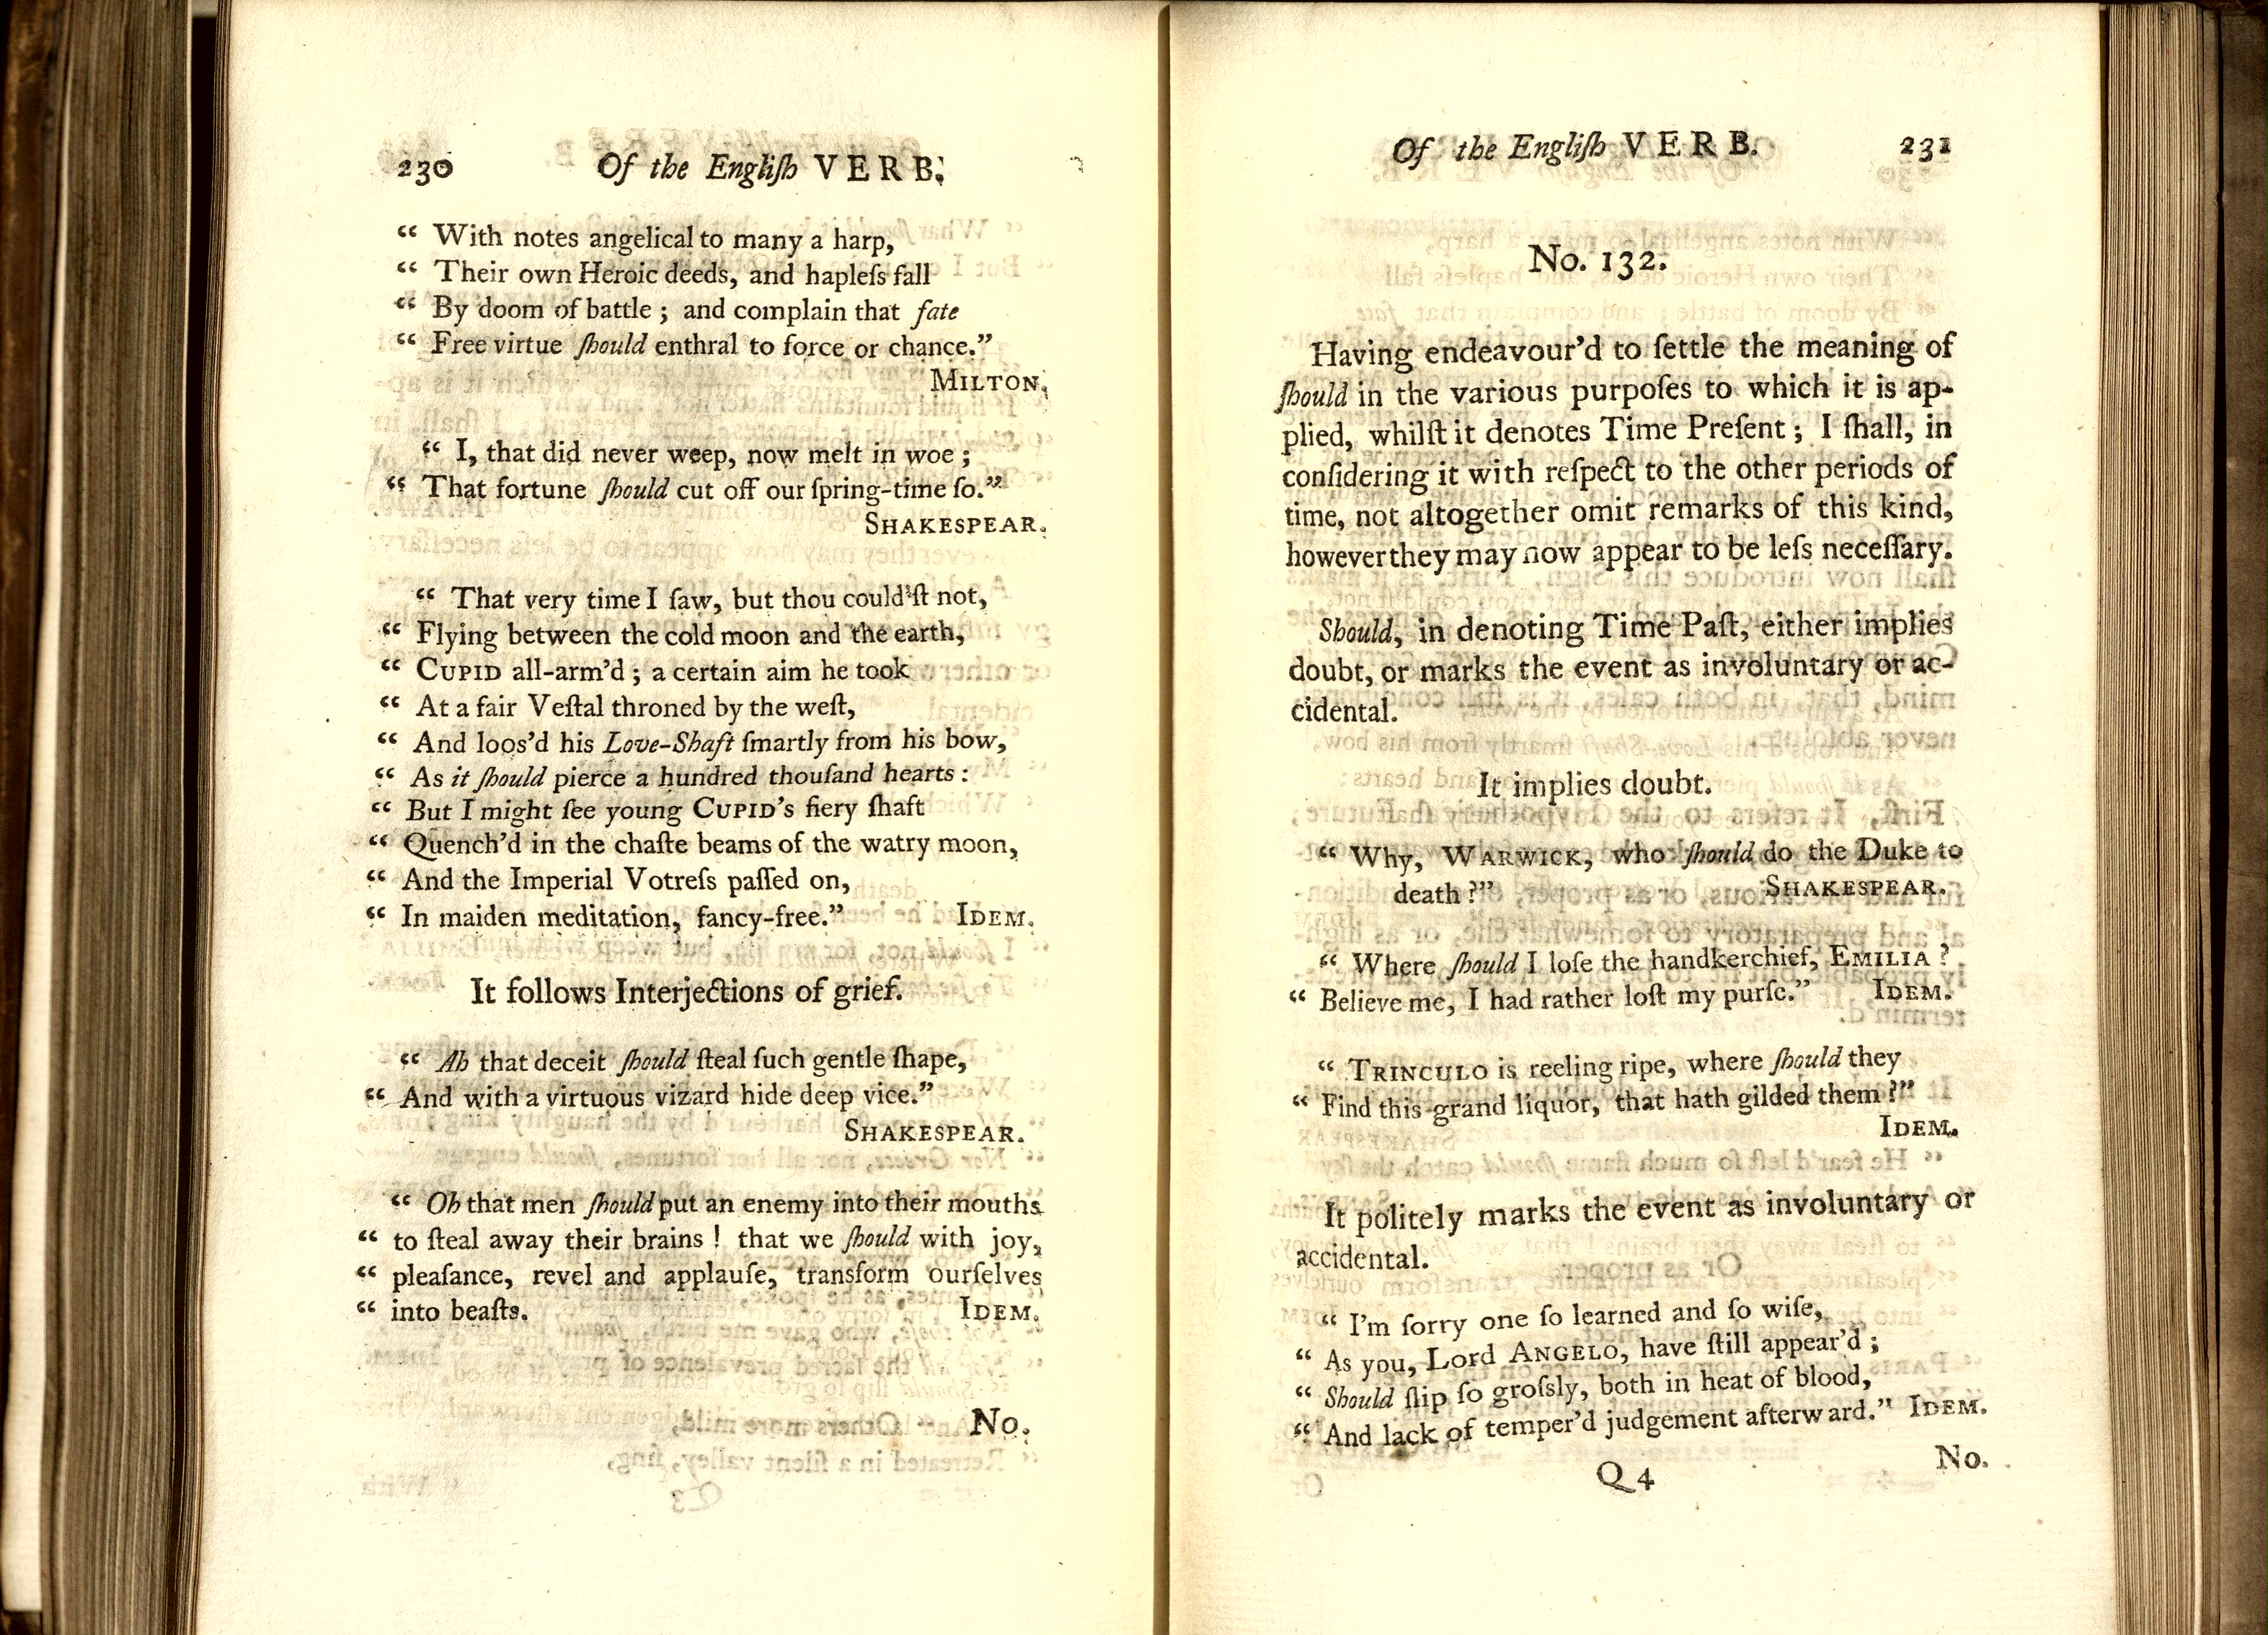 230 Of the Engliſh VERB.
“ With notes angelical to many a harp,
“ Their own Heroic deeds, and hapleſs fall
“ By doom of battle ; and complain that fate
“ Free virtue ſhould enthral to force or chance.”
MILTON.
“ I, that did never weep, now melt in woe ;
“ That fortune ſhould cut off our ſpring-time ſo.”
SHAKESPEAR.
“ That very time I ſaw, but thou could'ſt not,
“ Flying between the cold moon and the earth,
“ CUPID all-arm'd ; a certain aim he took
“ At a fair Veſtal throned by the weſt,
“ And loos'd his Love-Shaft ſmartly from his bow,
“ As it ſhould pierce a hundred thouſand hearts :
“ But I might ſee young CUPID's fiery ſhaft
“ Quench'd in the chaſte beams of the watry moon,
“ And the Imperial Votreſs paſſed on,
“ In maiden meditation, fancy-free.” IDEM.
It follows Interjections of grief.
“ Ah that deceit ſhould ſteal ſuch gentle ſhape,
“ And with a virtuous vizard hide deep vice.”
SHAKESPEAR.
“ Oh that men ſhould put an enemy into their mouths
“ to ſteal away their brains ! that we ſhould with joy,
“ pleaſance, revel and applauſe, transform ourſelves
“ into beaſts. IDEM.
No.
Of the Engliſh VERB. 231
No. 132.
Having endeavour'd to ſettle the meaning of
ſhould in the various purpoſes to which it is ap-
plied, whilſt it denotes Time Preſent ; I ſhall, in
conſidering it with reſpect to the other periods of
time, not altogether omit remarks of this kind,
however they may now appear to be leſs neceſſary.
Should, in denoting Time Paſt, either implies
doubt, or marks the event as involuntary or ac-
cidental.
It implies doubt.
“ Why, WARWICK, who ſhould do the Duke to
death ?” SHAKESPEAR.
“ Where ſhould I loſe the handkerchief, EMILIA ?
“ Believe me, I had rather loſt my purſe.” IDEM.
“ TRINCULO is reeling ripe, where ſhould they
“ Find this grand liquor, that hath gilded them ?”
IDEM.
It politely marks the event as involuntary or
accidental.
“ I'm ſorry one ſo learned and ſo wiſe,
“ As you, Lord ANGELO, have ſtill appear'd ;
“ Should ſlip ſo groſsly, both in heat of blood,
“ And lack of temper'd judgement afterward.” IDEM.
Q 4 No.